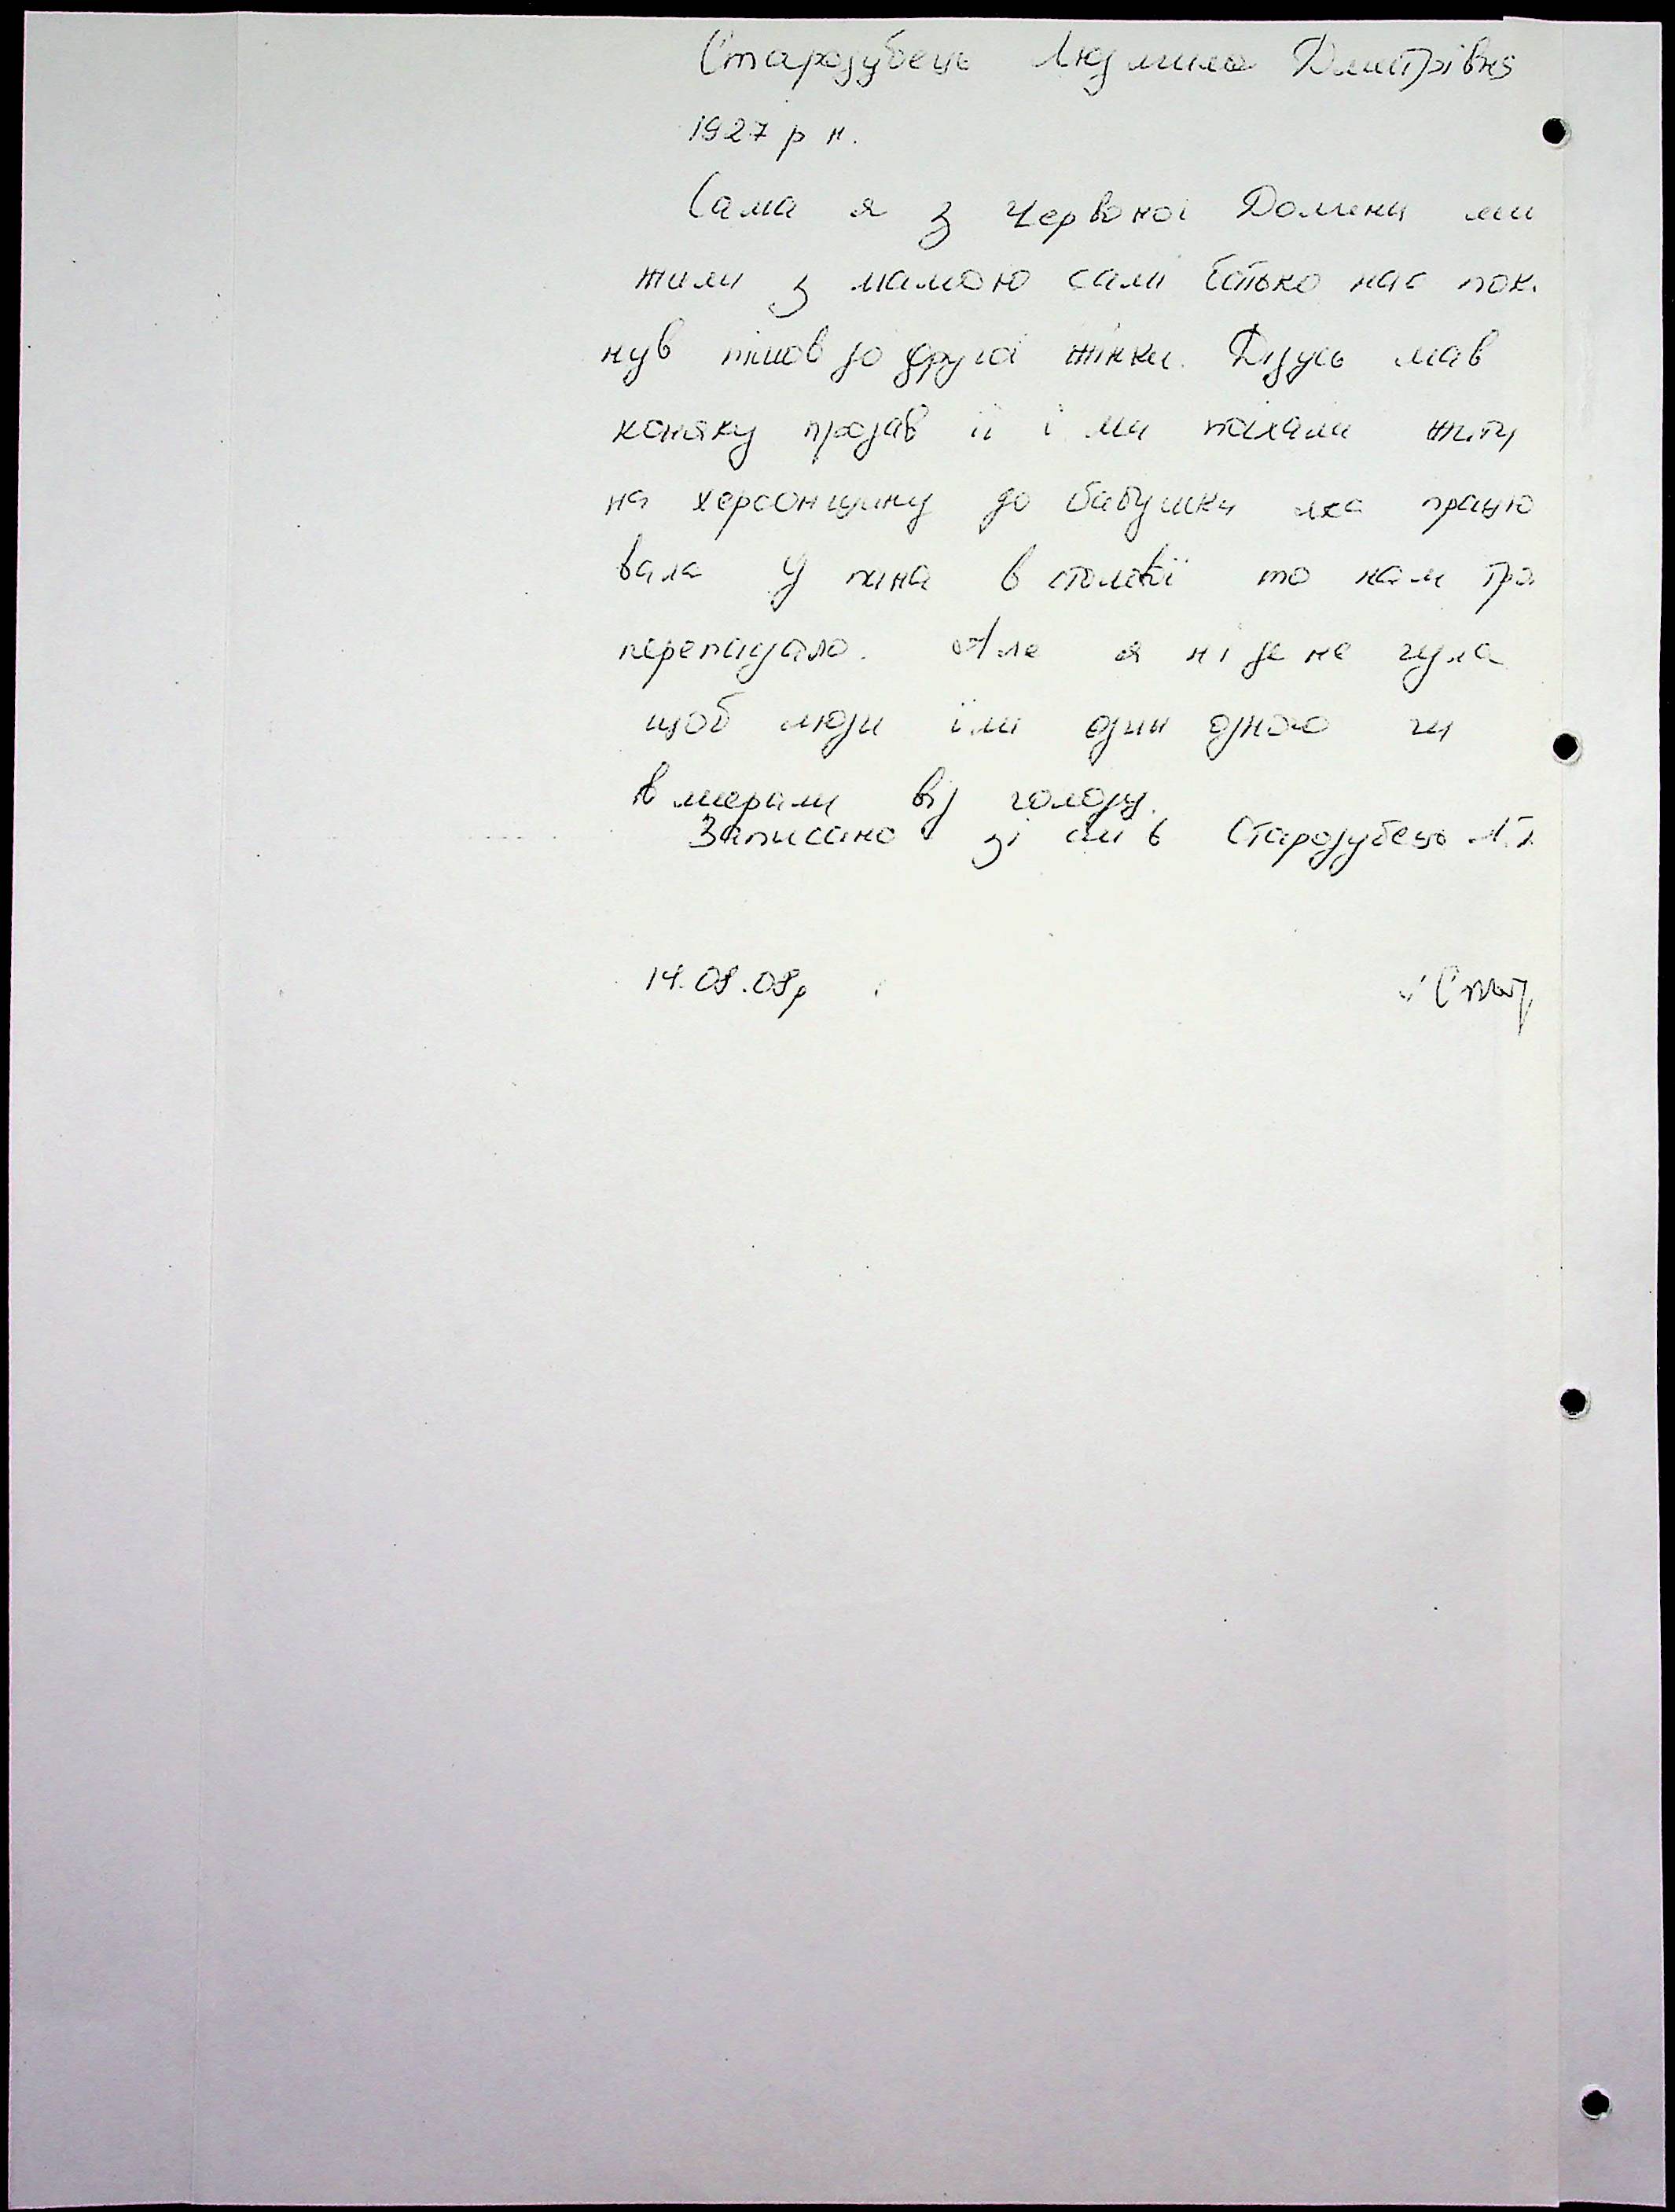 Стародубець Людмила Дмитрівна
1927 р н.
Сама я з Червоної Долини ми
жили з мамою самі батько нас пок
нув пішов до другої жінки. Дідусь мав
коняку продав її і ми поїхали жити
на херсонщину до бабушки яка працю
вала у пана в столовії то нам тро
перепадало. Але я ніде не чула
щоб люди їли один одного чи
вмерали від голоду.
Записано зі слів Стародубець Л.Д.
14.08.08р
Стар